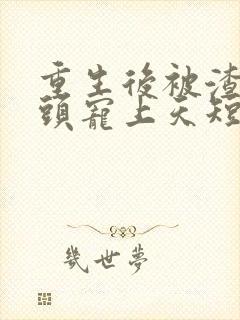 重生後被渣
頭寵上天短
幾世夢